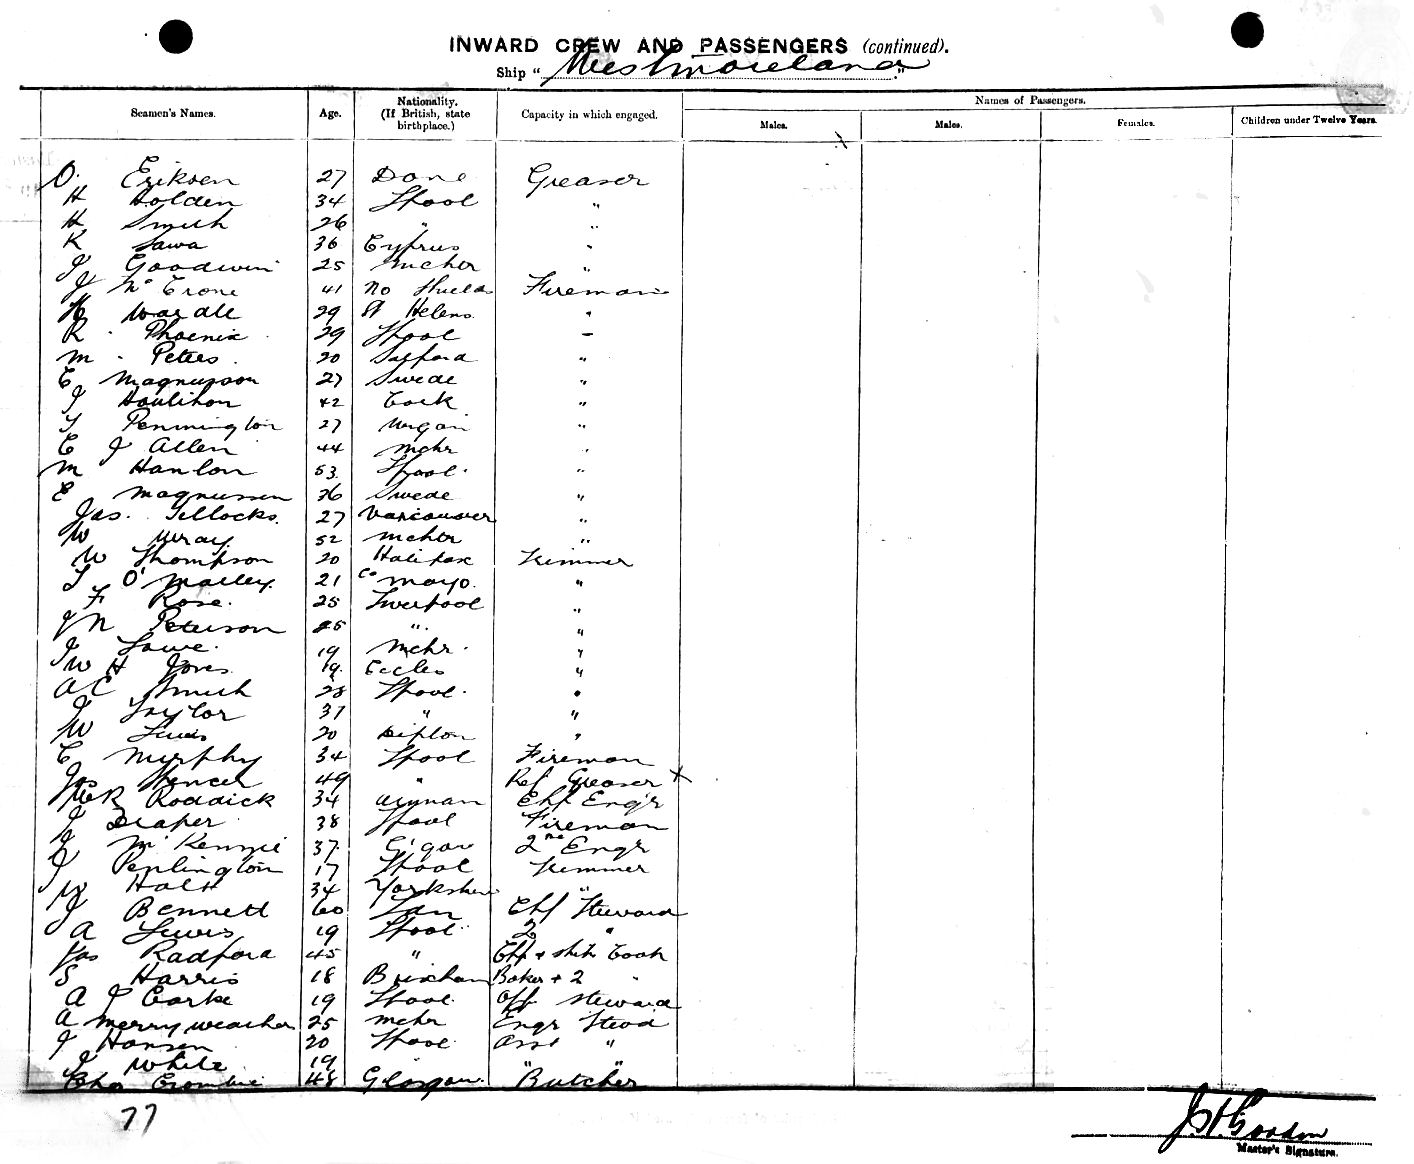 INWARD CREW AND PASSENGERS (continued).
Ship "Westmoreland"
Seamen's Names. Age. Nationality. (If British, state birthplace.) Capacity in which engaged. Names of Passengers.
Males. Males. Females. Children under Twelve Years.
O. Eriksen 27 Dane Greaser
H Holden 34 L'pool "
H Smith 26 " "
K Sawa 36 Cyprus "
J Goodwin 25 M'cher "
J Mc Crone 41 No Shields Fireman
H Wardle 29 St Helens "
R. Phoenix 29 L'pool "
M. Peters 20 Salford "
C Magnusson 27 Swede "
J Houlihan 42 Cork "
T Pennington 27 Wigan "
C J Allen 44 Mchr "
M Hanlon 53 L'pool "
E Magnussen 36 Swede "
Jas. Tellocks 27 Vancouver "
W Wray 52 Mcher "
W Thompson 20 Halifax Trimmer
T O'Malley 21 Co Mayo "
F Rose 25 Liverpool "
J N Peterson 25 " "
J Lowe 19 Mchr "
W H Jones 19 Eccles "
A E Smith 28 L'pool "
J Taylor 37 " "
W Lewis 20 "
C Murphy 34 L'pool Fireman
Jas Spencer 49 " Ref Greaser X
R Roddick 34 Chf Engr
J Draper 38 L'pool Fireman
J McKenzie 37 G'gow 2nd Engr
J Peplington 17 L'pool Trimmer
W Holt 34 Yorkshire "
J Bennett 60 Chf Steward
A Lewis 19 L'pool 2 "
Jas Radford 45 " Chf + Ship Cook
S Harris 18 Brixham Baker + 2 "
A J Corke 19 L'pool Off Steward
A Merryweather 25 Mchr Engr Stewd
J Hansen 20 L'pool Asst "
J White 19 " "
Chas Crombie 48 Glasgow Butcher
77
Master's Signature.